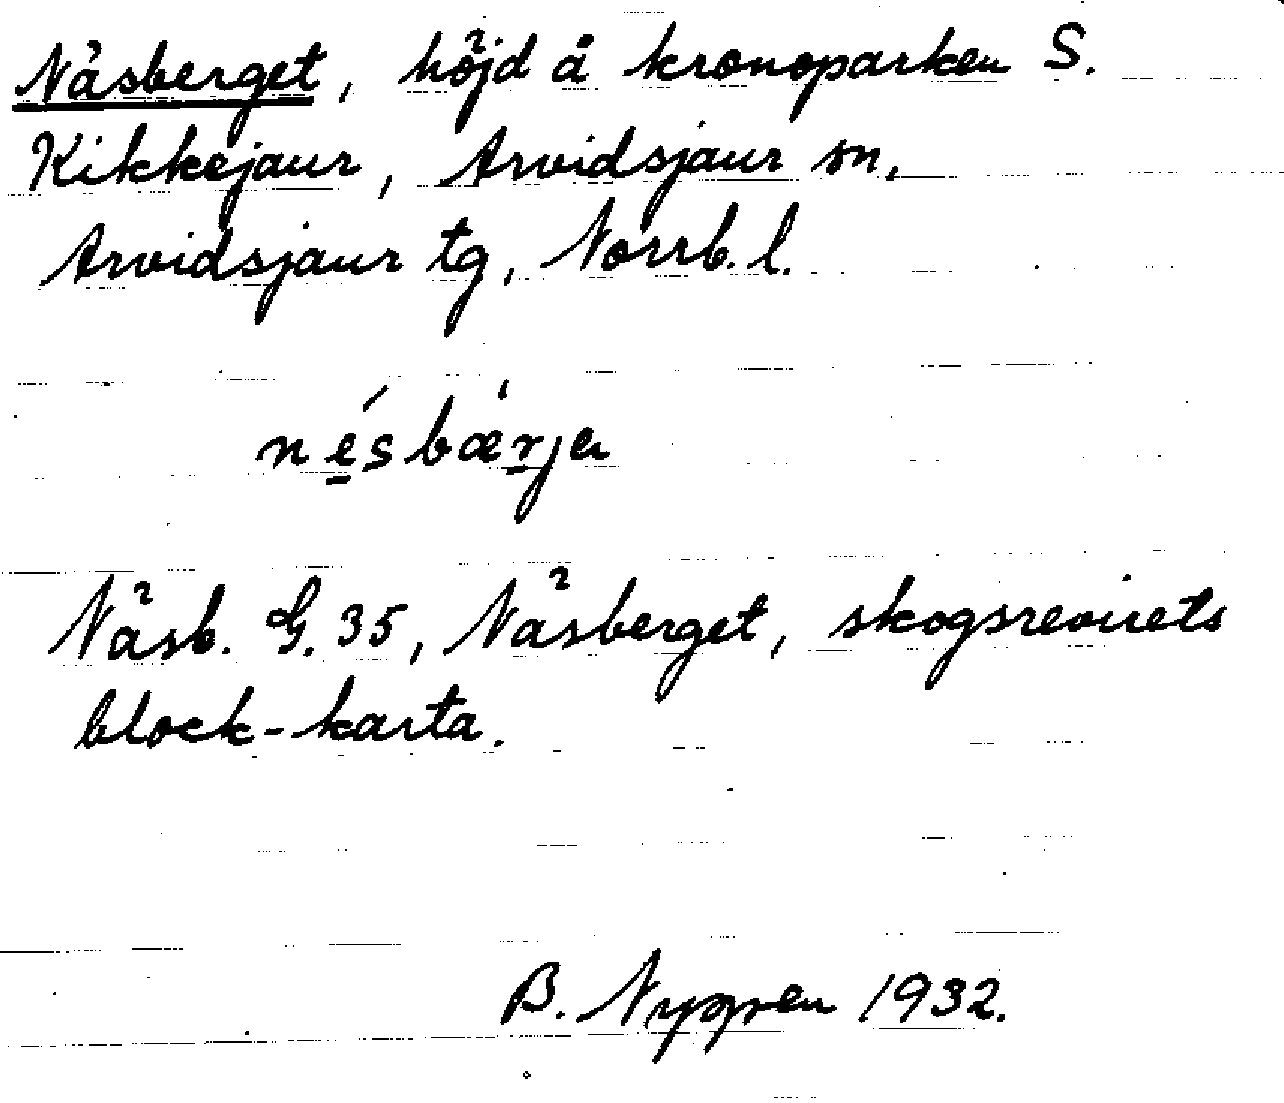 Näsberget, höjd å kronoparken S.
Kikkejaur, Arvidsjaur sn,
Arvidsjaur tg, Norrb. l.
nésbǽrja
Näsb. G. 35, Näsberget, skogsrevirets
block-karta.
B. Nygren 1932.